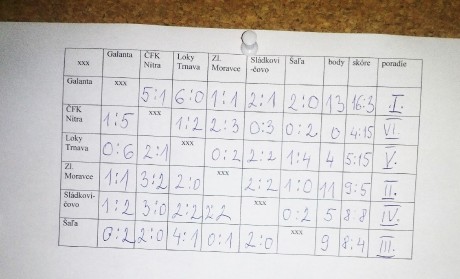 xxx Galanta ČFK Nitra Loky Trnava Zl. Moravce Sládkovi-čovo Šaľa body skóre poradie
Galanta xxx 5:1 6:0 1:1 2:1 2:0 13 16:3 I.
ČFK Nitra 1:5 xxx 1:2 2:3 0:3 0:2 0 4:15 VI.
Loky Trnava 0:6 2:1 xxx 0:2 2:2 1:4 4 5:15 V.
Zl. Moravce 1:1 3:2 2:0 xxx 2:2 1:0 11 9:5 II.
Sládkovi-čovo 1:2 3:0 2:2 2:2 xxx 0:2 5 8:8 IV.
Šaľa 0:2 2:0 4:1 0:1 2:0 xxx 9 8:4 III.